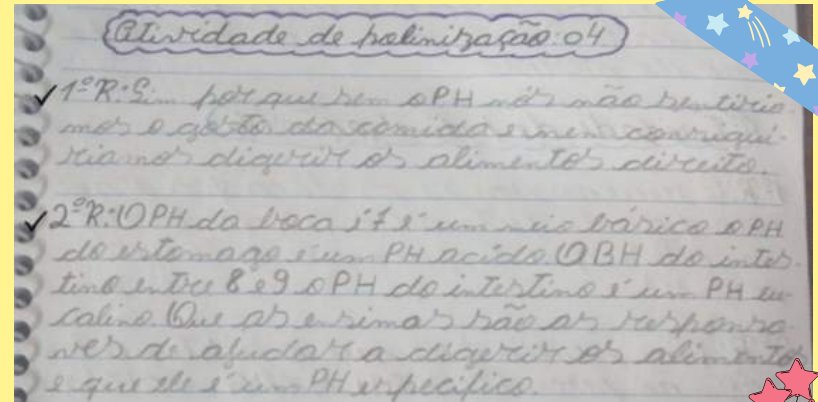 Atividade de polinização: 04
1ºR: Sim porque sem o PH nós não sentiria-
mos o gosto da comida e nem consiqui-
riamos digerir os alimentos direito.
2ºR: O PH da boca é um meio básico o PH
do estomago é um PH acido O BH do intes-
tino entre 8 e 9 o PH do intestino é um PH
calino Que as ensimas são as responsa-
veis de ajudar a digerir os alimentos
e que ele é um PH especifico.